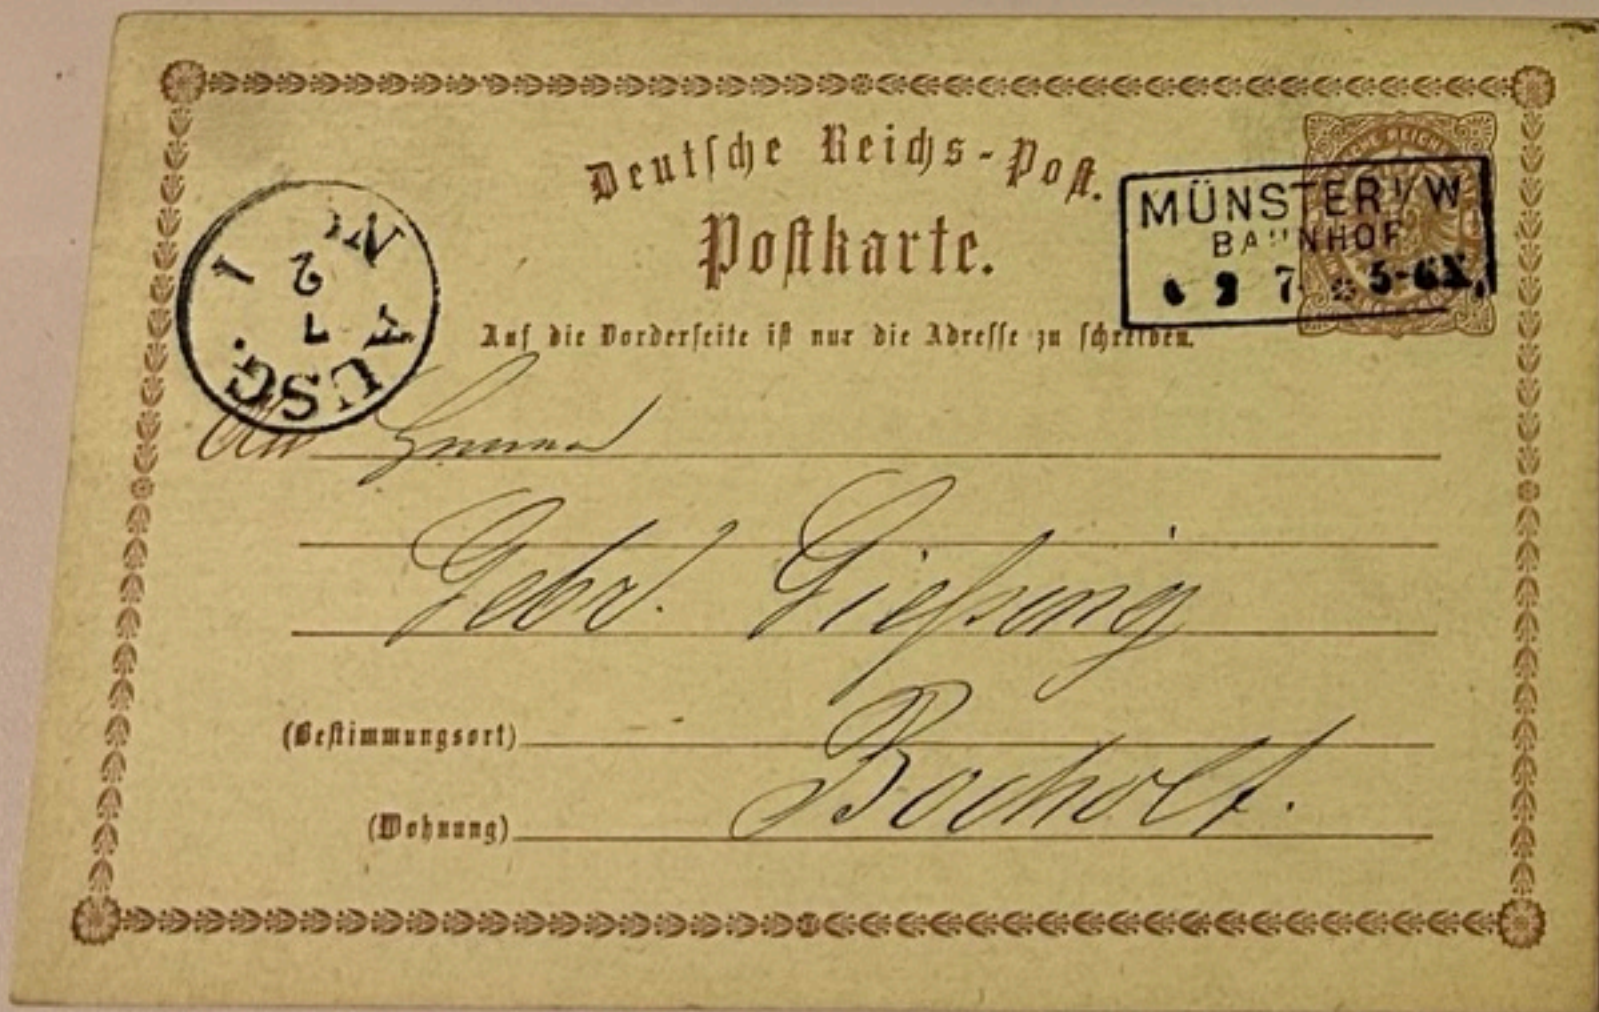 Deutsche Reichs-Post.
Postkarte.
MÜNSTER I/W
BAHNHOF
2 7 5-6N.
AUSG. No 1
2 7
Auf die Vorderseite ist nur die Adresse zu schreiben.
An
Gebr. Gießing
(Bestimmungsort)
Bocholt.
(Wohnung)